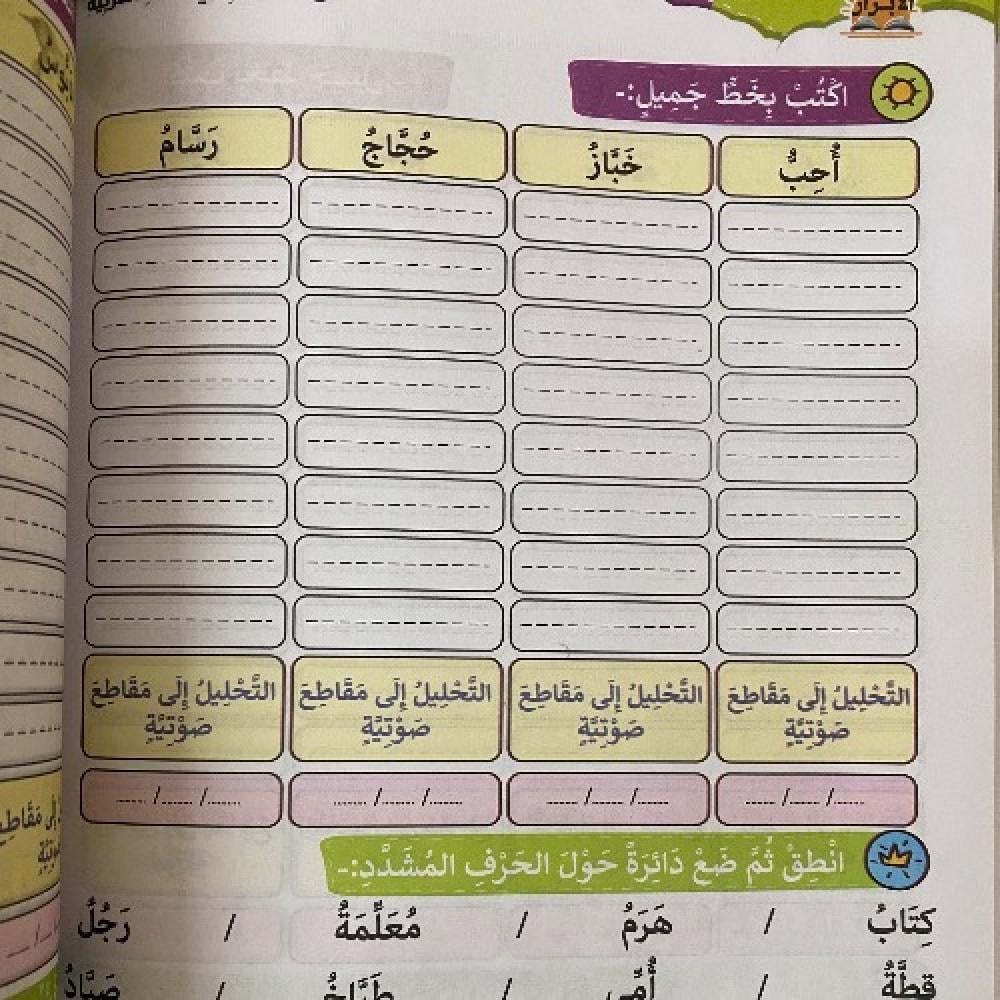 الأبرار
اكْتُبْ بِخَطٍّ جَمِيلٍ:-
أُحِبُّ خَبَّازُ حُجَّاجُ رَسَّامُ
التَّحْلِيلُ إِلَى مَقَاطِعَ التَّحْلِيلُ إِلَى مَقَاطِعَ التَّحْلِيلُ إِلَى مَقَاطِعَ التَّحْلِيلُ إِلَى مَقَاطِعَ
صَوْتِيَّةٍ صَوْتِيَّةٍ صَوْتِيَّةٍ صَوْتِيَّةٍ
...... /...... /...... ...... /...... /...... ...... /...... /...... ...... /...... /......
انْطِقْ ثُمَّ ضَعْ دَائِرَةً حَوْلَ الحَرْفِ المُشَدَّدِ:-
كِتَابُ / هَرَمُ / مُعَلِّمَةٌ / رَجُلُ
قِطَّةٌ / أُمِّي / طَبَّاخُ / صَيَّادُ